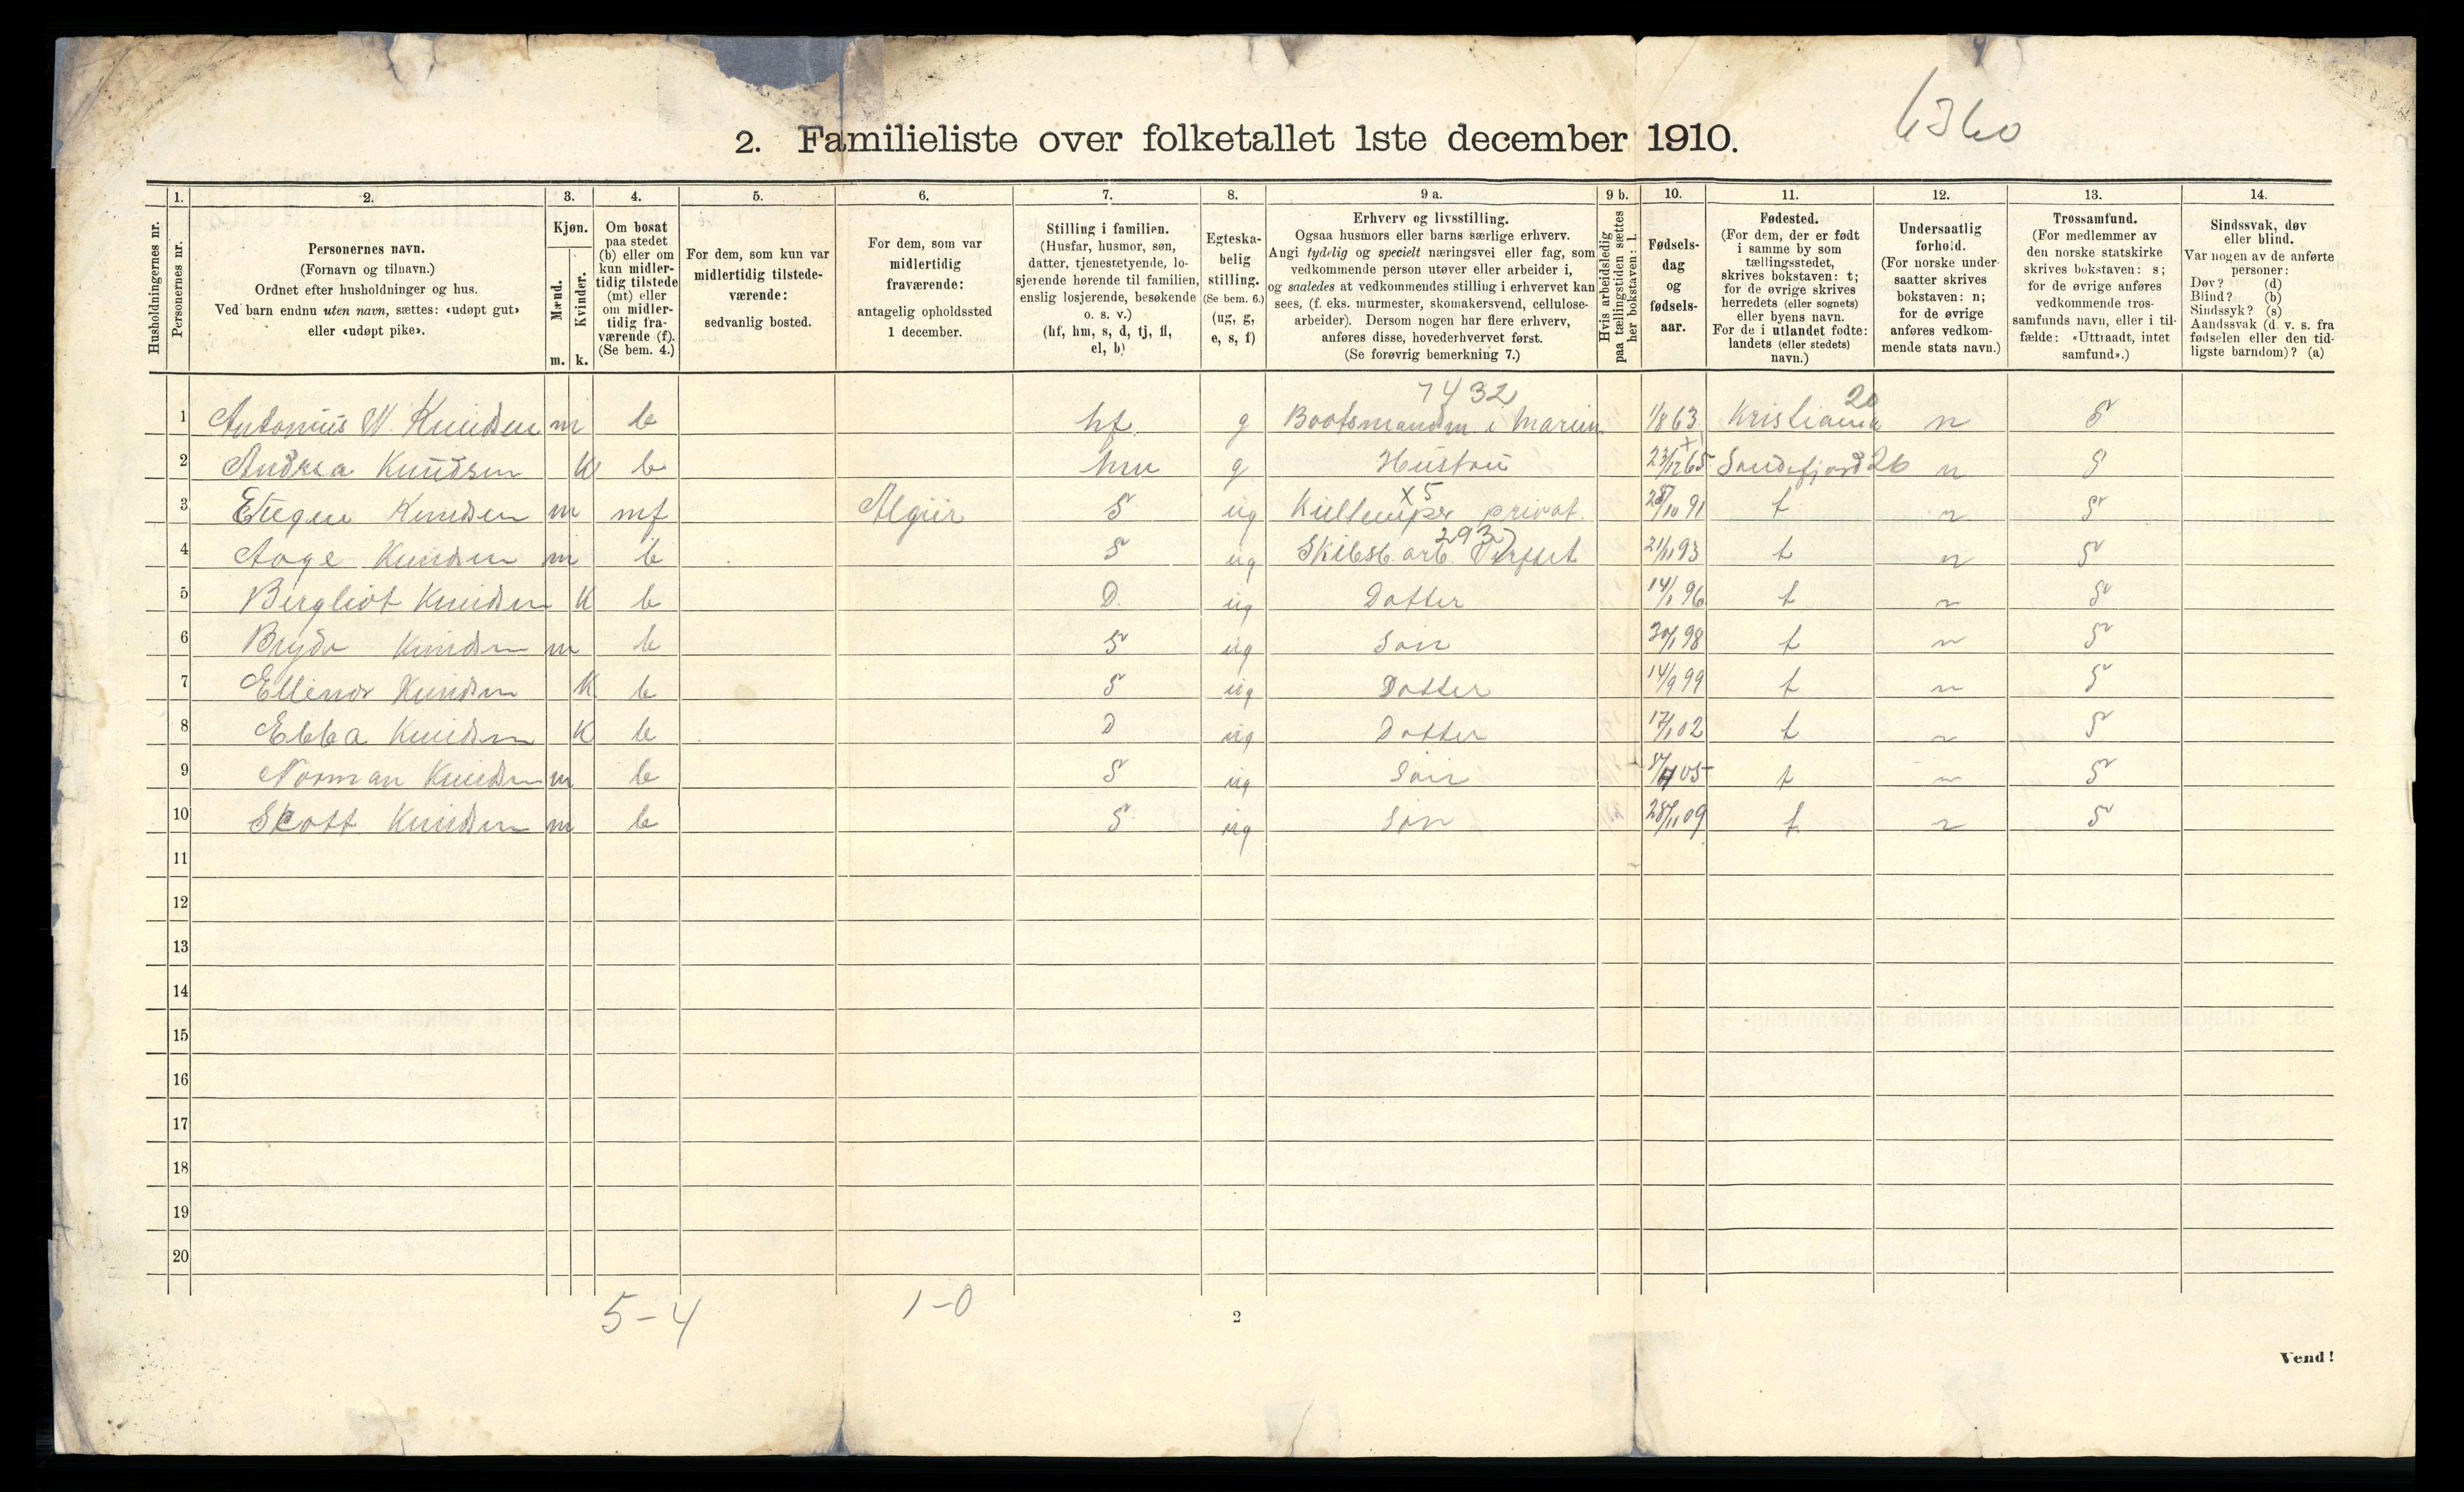 2. Familieliste over folketallet 1ste december 1910.
6360
Husholdningernes nr.
1. Personernes nr.
2. Personernes navn. (Fornavn og tilnavn.) Ordnet efter husholdninger og hus. Ved barn endnu uten navn, sættes: «udøpt gut» eller «udøpt pike».
3. Kjøn. Mænd. m. Kvinder. k.
4. Om bosat paa stedet (b) eller om kun midlertidig tilstede (mt) eller om midlertidig fraværende (f). (Se bem. 4.)
5. For dem, som kun var midlertidig tilstedeværende: sedvanlig bosted.
6. For dem, som var midlertidig fraværende: antagelig opholdssted 1 december.
7. Stilling i familien. (Husfar, husmor, søn, datter, tjenestetyende, losjerende hørende til familien, enslig losjerende, besøkende o. s. v.) (hf, hm, s, d, tj, fl, el, b)
8. Egteskabelig stilling. (Se bem. 6.) (ug, g, e, s, f)
9 a. Erhverv og livsstilling. Ogsaa husmors eller barns særlige erhverv. Angi tydelig og specielt næringsvei eller fag, som vedkommende person utøver eller arbeider i, og saaledes at vedkommendes stilling i erhvervet kan sees, (f. eks. murmester, skomakersvend, cellulosearbeider). Dersom nogen har flere erhverv, anføres disse, hovederhvervet først. (Se forøvrig bemerkning 7.)
9 b. Hvis arbeidsledig paa tællingstiden sættes her bokstaven: l.
10. Fødselsdag og fødselsaar.
11. Fødested. (For dem, der er født i samme by som tællingsstedet, skrives bokstaven: t; for de øvrige skrives herredets (eller sognets) eller byens navn. For de i utlandet fødte: landets (eller stedets) navn.)
12. Undersaatlig forhold. (For norske undersaatter skrives bokstaven: n; for de øvrige anføres vedkommende stats navn.)
13. Trossamfund. (For medlemmer av den norske statskirke skrives bokstaven: s; for de øvrige anføres vedkommende trossamfunds navn, eller i tilfælde: «Uttraadt, intet samfund».)
14. Sindssvak, døv eller blind. Var nogen av de anførte personer: Døv? (d) Blind? (b) Sindssyk? (s) Aandssvak (d. v. s. fra fødselen eller den tidligste barndom)? (a)
7432 20
1 Antonius W. Knudsen m b hf. g Baatsmand i Marin 1/8 63 Kristiania n S
2 Andrea Knudsen K b hm g Hustru 23/12 65 Sandefjord 26 n S
x5
3 Knudsen m mf Algier S ug privat. 28/10 91 t n S
293
4 Aage Knudsen m b S ug Skibsb. arb. Verftet 21/11 93 t n S
5 Bergliot Knudsen K b D. ug Datter 14/1 96 t n S
6 Bryde Knudsen m b S ug Søn 30/1 98 t n S
7 Ellenor Knudsen K b S ug Datter 14/9 99 t n S
8 Ebba Knudsen K b D ug Datter 17/1 02 t n S
9 Norman Knudsen m b S ug Søn 05 t n S
10 Skott Knudsen m b S. ug Søn 28/11 09 t n S
11
12
13
14
15
16
17
18
19
20
5-4 1-0
2
Vend!